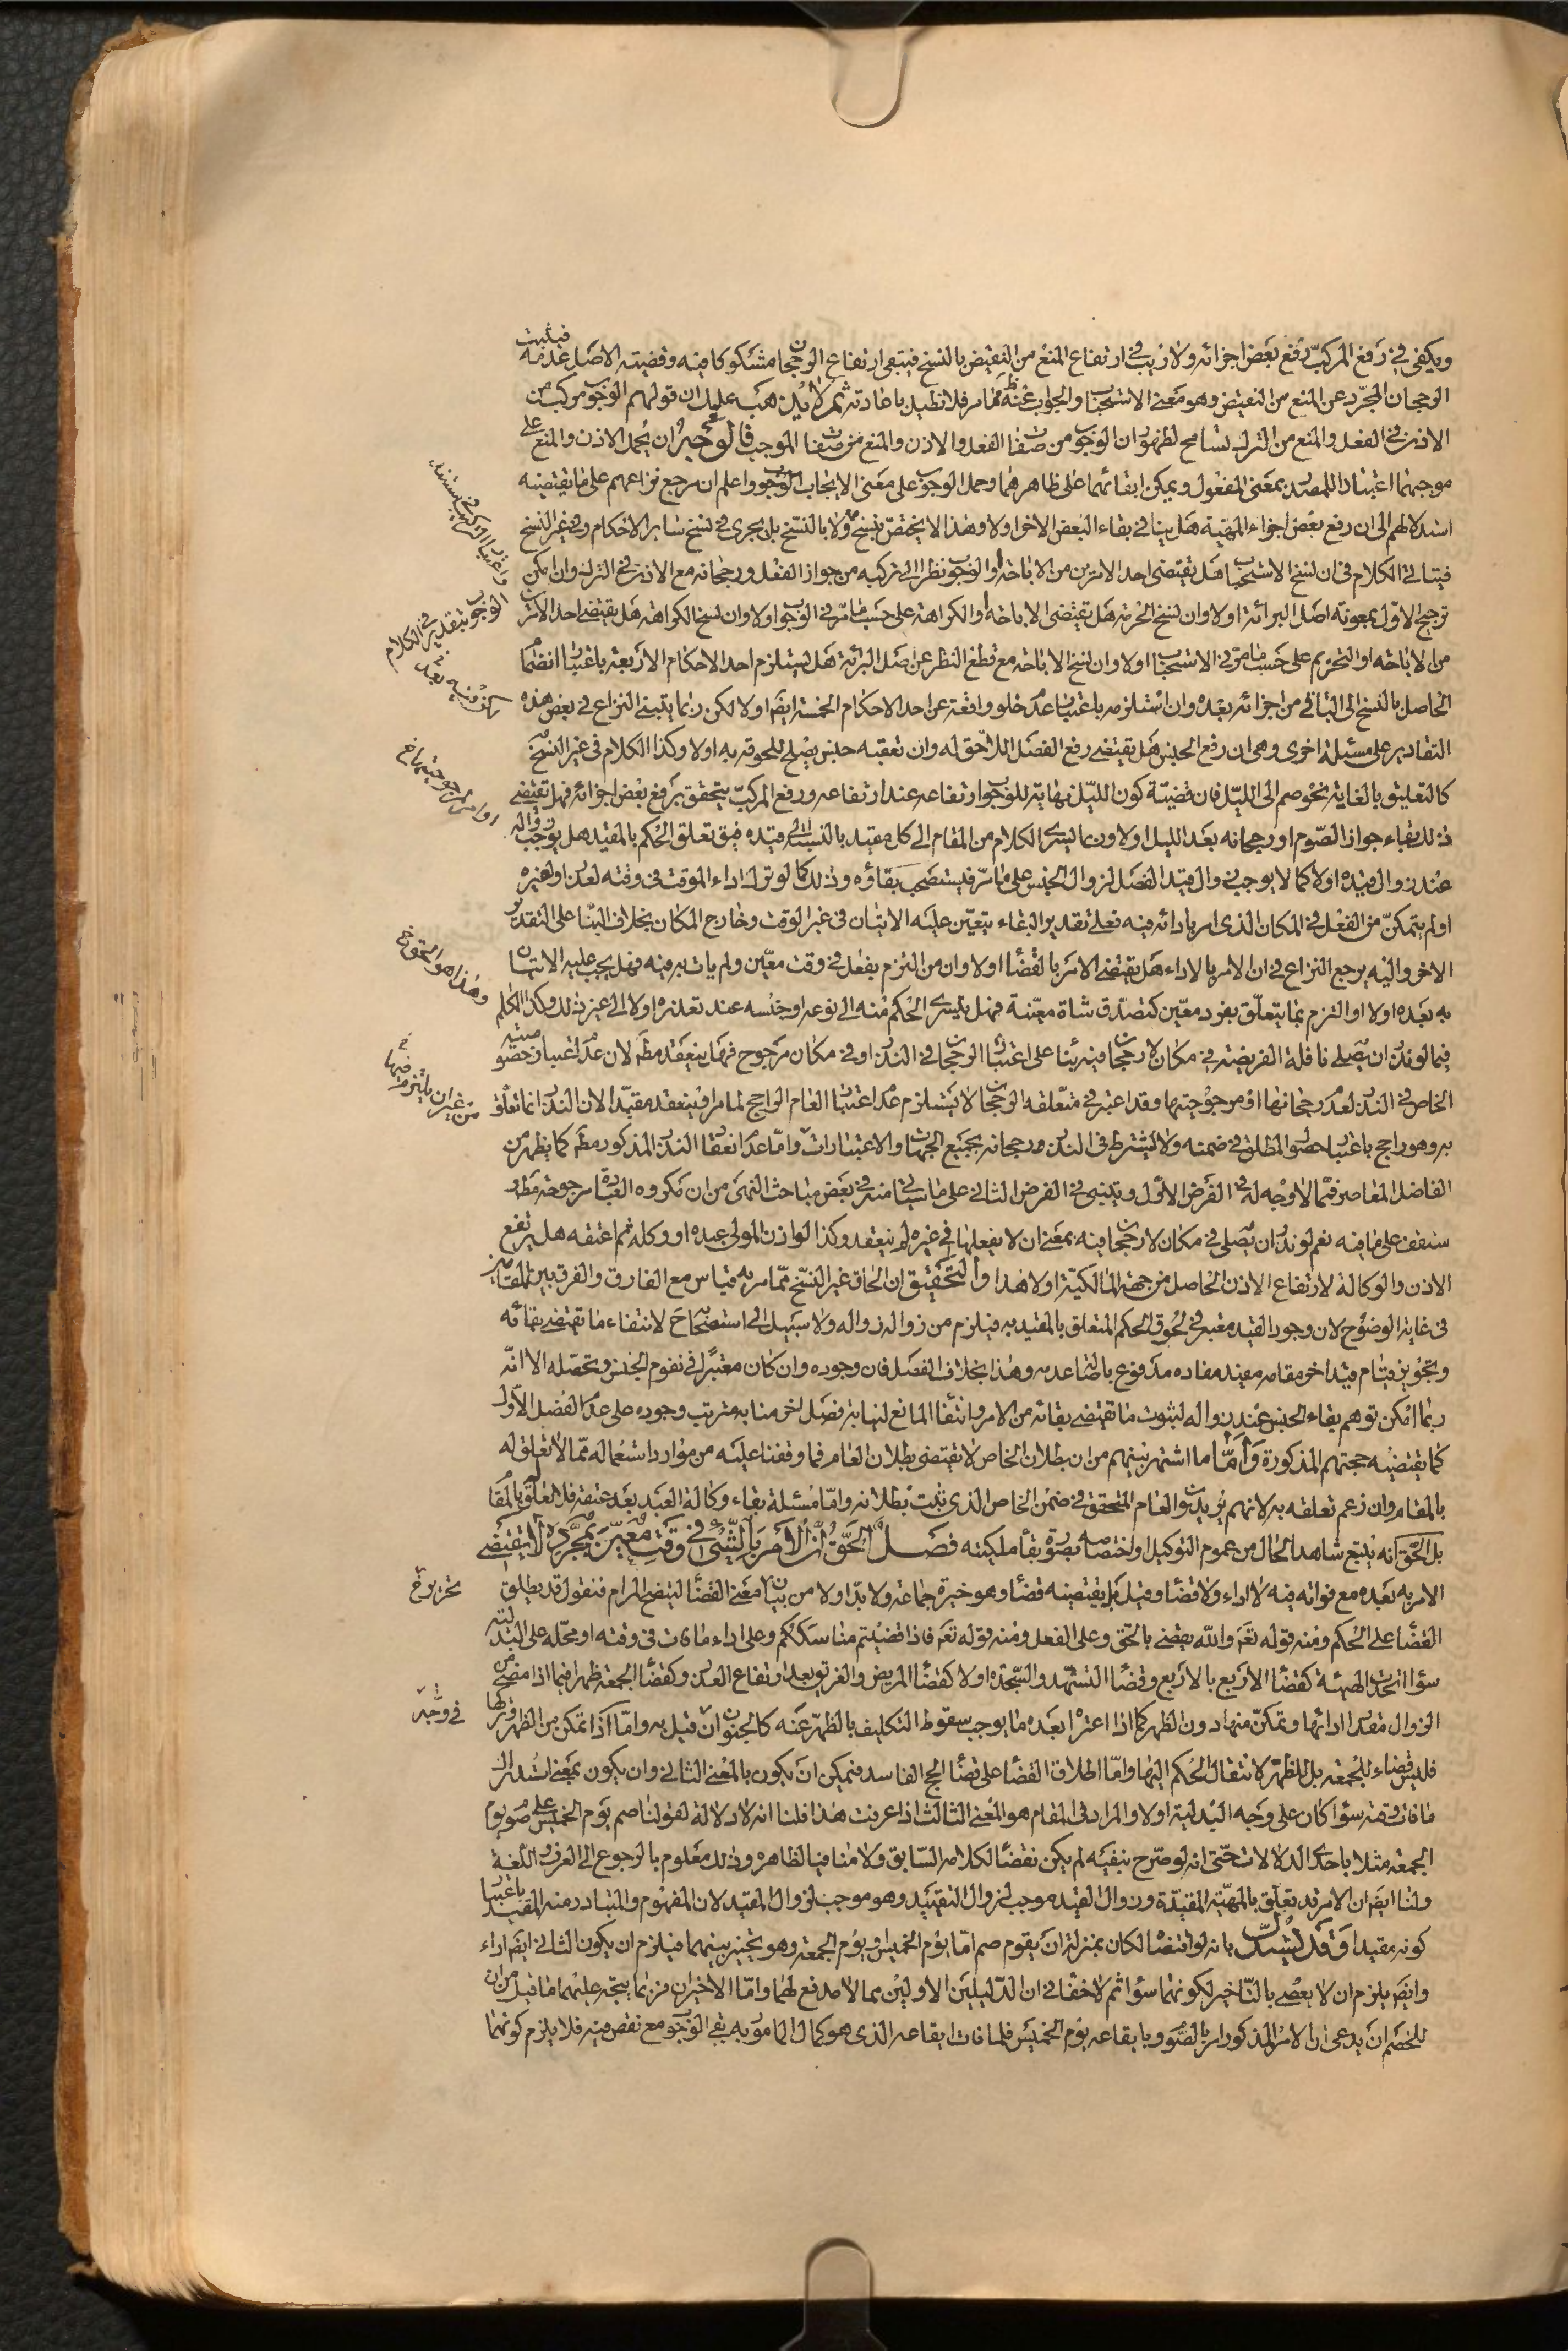 ويكفي في رفع المركب رفع بعض اجزائه ولا ريب في ارتفاع المنع من النقيض بالنسخ فيبقى ارتفاع الرجحان مشكوكا فيه وقضيته الاصل عدمه فيثبت
الرجحان المجرد عن المنع من النقيض وهو معنى الاستحباب والجواب عنه ظ مما مر فلا نطيل باعادته ثم لا يذهب عليك ان قولهم الوجوب مركب من
الاذن في الفعل والمنع من الترك تسامح لظهور ان الوجوب من صفات الفعل والاذن والمنع من صفات الموجب فالوجه ان يحمل الاذن والمنع على
موجبهما اعتبارا للمصدر بمعنى المفعول ويمكن ابقائهما على ظاهرهما وحمل الوجوب على معنى الايجاب واعلم ان مرجع نزاعهم على ما يقتضيه
استدلالهم الى ان رفع بعض اجزاء المهية هل ينافي بقاء البعض الاخر اولا وهذا لا يختص بنسخ الوجوب ولا بالنسخ بل يجري في نسخ ساير الاحكام وفي غير النسخ
فيتاتى الكلام في ان نسخ الاستحباب هل يقتضى احد الامرين من الاباحة او الوجوب نظرا الى تركبه من جواز الفعل ورجحانه مع الاذن في الترك وان امكن
ترجيح الاول بمعونة اصل البرائة اولا وان نسخ الحرمة هل يقتضى الاباحة او الكراهة على حسب ما مر في الوجوب اولا وان نسخ الكراهة هل يقتضى احد الامرين
من الاباحة او التحريم على حسب ما مر في الاستحباب اولا وان نسخ الاباحة مع قطع النظر عن اصل البرائة هل يستلزم احد الاحكام الاربعة باعتبار انضمام
الحاصل بالنسخ الى الباقي من اجزائه بعده وان استلزمه باعتبار عدم خلو واقعة عن احد الاحكام الخمسة ايضا اولا لكن ربما يتبنى النزاع في بعض هذه
التقادير على مسئلة اخرى وهي ان رفع الجنس هل يقتضى رفع الفصل اللاحق له وان تعقبه جنس يصلح للحوقه به اولا وكذا الكلام في غير النسخ
كالتعليق بالغاية نحو صم الى الليل فان قضية كون الليل نهاية للوجوب ارتفاعه عند ارتفاعه ورفع المركب يتحقق برفع بعض اجزائه فهل يقتضى
ذلك بقاء جواز الصوم او رجحانه بعد الليل اولا وربما يسرى الكلام من المقام الى كل مقيد بالنسبة الى قيده فيق تعلق الحكم بالمقيد هل يوجب زواله
عند زوال قيده اولا كما لا يوجب زوال قيد الفصل لزوال الجنس على ما مر فيستصحب بقاؤه وذلك كما لو ترك اداء الموقت في وقته لعذر او لغيره
او لم يتمكن من الفعل في المكان الذى امر بادائه فيه فعلى تقدير البقاء يتعين عليه الاتيان في غير الوقت وخارج المكان بخلاف البناء على التقدير
الاخر واليه يرجع النزاع في ان الامر بالاداء هل يقتضى الامر بالقضاء اولا وان من التزم بفعل في وقت معين ولم يات به فيه فهل يجب عليه الاتيان
به بعده اولا او التزم بما يتعلق بفرد معين كتصدق شاة معينة فهل يسرى الحكم منه الى نوعه او جنسه عند تعذره اولا الى غير ذلك وكذا الكلام
فيما لو نذر ان يصلى نافلة الفريضة في مكان لا رجحان فيه بناء على اعتبار الرجحان في النذر او في مكان مرجوح فهل ينعقد مط لان عدم اعتبار خصوصية
الخاص في النذر لعدم رجحانها او مرجوحيتها وقد اعتبر في متعلقه الرجحان لا يستلزم عدم اعتبار العام الراجح لما مر او ينعقد مقيدا لان النذر انما تعلق
به وهو راجح باعتبار حصول المطلق في ضمنه ولا يشترط في النذر رجحانه بجميع الجهات والاعتبارات واما عدم انعقاد النذر المذكور مط كما يظهر من
الفاضل المعاصر فمما لا وجه له في الفرض الاول ويبتنى في الفرض الثاني على ما سياتي منه في بعض مباحث النهى من ان مكروه العبادة مرجوحة مط و
ستقف على ما فيه نعم لو نذر ان يصلى في مكان لا رجحان فيه بمعنى ان لا يفعلها في غيره لم ينعقد وكذا لو اذن المولى عبده او وكله ثم اعتقه هل يرتفع
الاذن والوكالة لارتفاع الاذن الحاصل من جهة المالكية اولا هذا والتحقيق ان الحاق غير النسخ مما مر به قياس مع الفارق والفرق بين المقامين
في غاية الوضوح لان وجود القيد معتبر في لحوق الحكم المتعلق بالمقيد به فيلزم من زواله زواله ولا سبيل الى استصحابه ح لانتفاء ما يقتضى بقائه
وتجويز قيام قيد اخر مقامه مفيد مفاده مدفوع باصالة عدمه وهذا بخلاف الفصل فان وجوده وان كان معتبرا في تقوم الجنس وتحصله الا انه
ربما امكن توهم بقاء الجنس عند زواله لثبوت ما يقتضى بقائه من الامر وانتفاء المانع لنيابة فصل اخر منابه مترتب وجوده على عدم الفصل الاول
كما يقتضيه حجتهم المذكورة واما ما اشتهر بينهم من ان بطلان الخاص لا يقتضى بطلان العام فما وقفنا عليه من موارد استعماله مما لا تعلق له
بالمقام وان زعم تعلقه به لانهم يريدون العام المتحقق في ضمن الخاص الذى ثبت بطلانه واما مسئلة بقاء وكالة العبد بعد عتقه فلا تعلق له بالمقام
بل الحق انه يتبع شاهد الحال من عموم التوكيل او اختصاصه بصورة بقاء ملكيته فصل الحق ان الامر بالشئ في وقت معين بمجرده لا يقتضى
الامر به بعده مع فواته فيه لا اداء ولا قضاء وقيل بل يقتضيه قضاء وهو خيرة جماعة ولا بد اولا من بيان معنى القضاء ليتضح المرام فنقول قد يطلق
القضاء على الحكم ومنه قوله تع والله يقضى بالحق وعلى الفعل ومنه قوله تع فاذا قضيتم مناسككم وعلى اداء ما فات في وقته او محله على البدلية
سواء اتحدت الهيئة كقضاء الاربع بالاربع وقضاء التشهد والسجدة اولا كقضاء المريض والغريق بعد ارتفاع العذر وكقضاء الجمعة ظهرا فيما اذا مضى من
الزوال مقدار ادائها وتمكن منها دون الظهر كما اذا اعتراه بعده ما يوجب سقوط التكليف بالظهر عنه كالجنون ان قيل به واما اذا تمكن من الظهر وتركها
فليس قضاء للجمعة بل للظهر لانتقال الحكم اليها واما اطلاق القضاء على قضاء الحج الفاسد فيمكن ان يكون بالمعنى الثاني وان يكون بمعنى استدراك
ما فات وقته سواء كان على وجه البدلية اولا والمراد في المقام هو المعنى الثالث اذا عرفت هذا فلنا انه لا دلالة لقولنا صم يوم الخميس على صوم يوم
الجمعة مثلا باحدى الدلالات حتى انه لو صرح بنفيه لم يكن نقضا لكلامه السابق ولا منافيا لظاهره وذلك معلوم بالرجوع الى العرف واللغة
ولنا ايضا ان الامر قد تعلق بالمهية المقيدة وزوال القيد موجب لزوال التقييد وهو موجب لزوال المقيد لان المفهوم والمتبادر منه المقيد باعتبار
كونه مقيدا وقد يستدل بانه لو اقتضاه لكان بمنزلة ان يقول صم اما يوم الخميس او يوم الجمعة وهو تخيير بينهما فيلزم ان يكون الثاني ايضا اداء
وايضا يلزم ان لا يعصى بالتاخير لكونهما سواء ثم لا خفاء في ان الدليلين الاولين مما لا مدفع لهما واما الاخيران فربما يتجه عليهما ما قيل من ان
للخصم ان يدعى ان الامر المذكور امر بالصوم وبايقاعه يوم الخميس فلما فات ايقاعه الذى هو كمال المامور به بقى الوجوب مع نقص فيه فلا يلزم كونهما
الوجوب بتقدير في الكلام
او مرجوحيتها خ
وهذا هو الحق خ
من غير ان يلتزم فيها
تحرير خ
في وجه